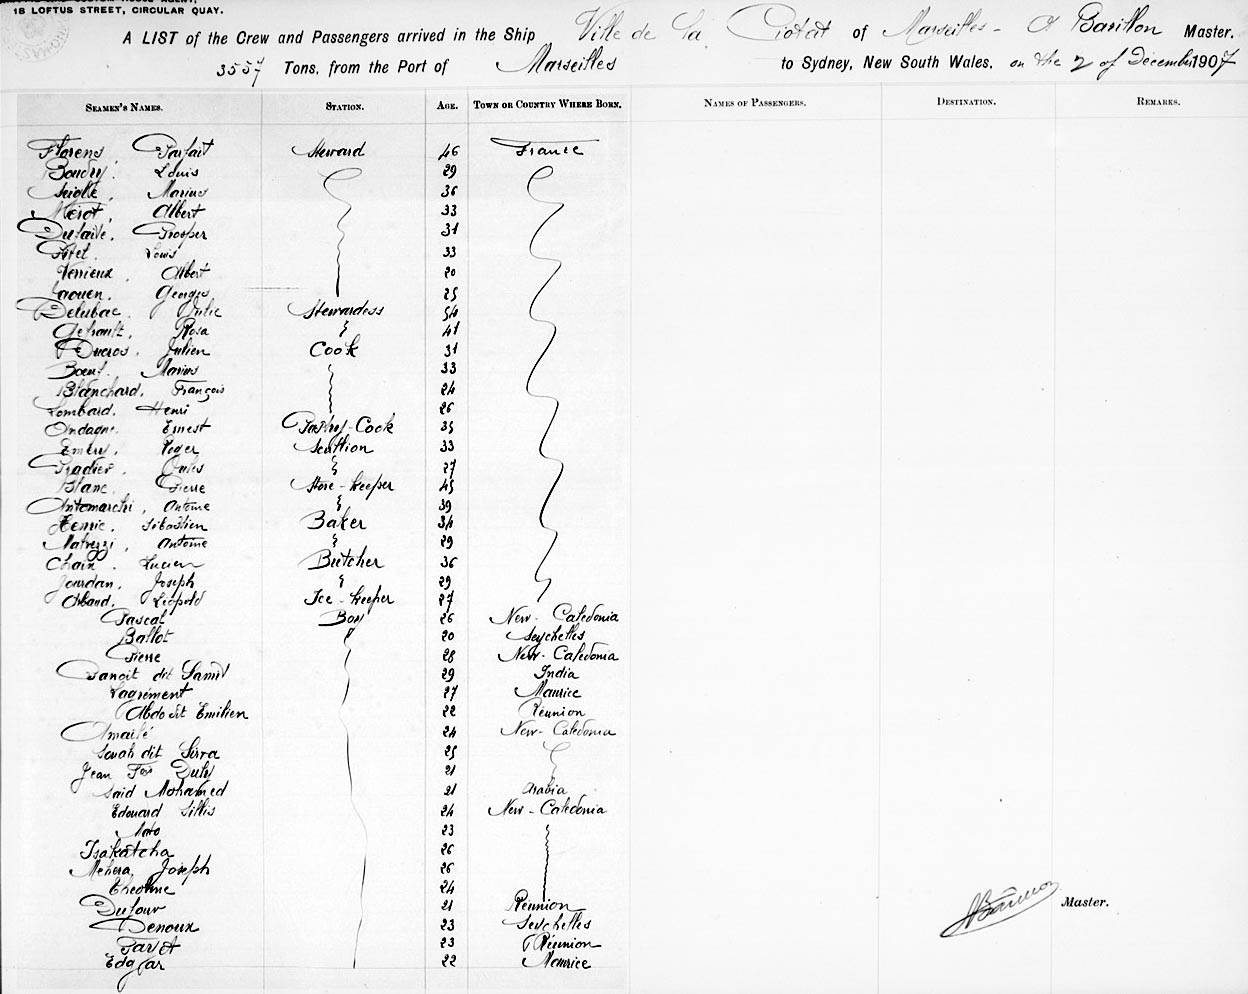 18 LOFTUS STREET, CIRCULAR QUAY.
A LIST of the Crew and Passengers arrived in the Ship Ville de La Ciotat of Marseilles - A Barillon Master,
3557 Tons, from the Port of Marseilles to Sydney, New South Wales, on the 2 of December 1907
SEAMEN'S NAMES. STATION. AGE. TOWN OR COUNTRY WHERE BORN. NAMES OF PASSENGERS. DESTINATION. REMARKS.
Florens, Parfait Steward 46 France
Boudry. Louis 29
Marius 36
Albert 33
Prosper 31
Louis 33
Verrieux Albert 20
Laouen. Georges 25
Delubac. Julie Stewardess 54
Rosa 41
Ducros. Julien Cook 31
Boeuf. Marius 33
Blanchard. François 24
Lombard. Henri 26
Ondagne. Ernest Pastry-Cook 35
Emery. Roger Scullion 33
Pradier. Jules 27
Blanc. Pierre Store-keeper 45
Antomarchi, Antoine 39
Sébastien Baker 34
Antoine 29
Chaix. Lucien Butcher 36
Jourdan. Joseph 29
Léopold Ice-keeper 27
Pascal Boy 26 New-Caledonia
Ballot 20 Seychelles
Pierre 28 New-Caledonia
dit 29 India
Lagrément 27 Maurice
Abdo dit Emilien 22 Réunion
Amaïlé 24 New-Caledonia
dit 25
Jean 21
Said Mohamed 21 Arabia
Edouard 24 New-Caledonia
23
Isakatcha 26
Mehera, Joseph 26
24
Dufour 21 Réunion
Denoux 23 Seychelles
23 Réunion
Edgar 22 Maurice
Master.